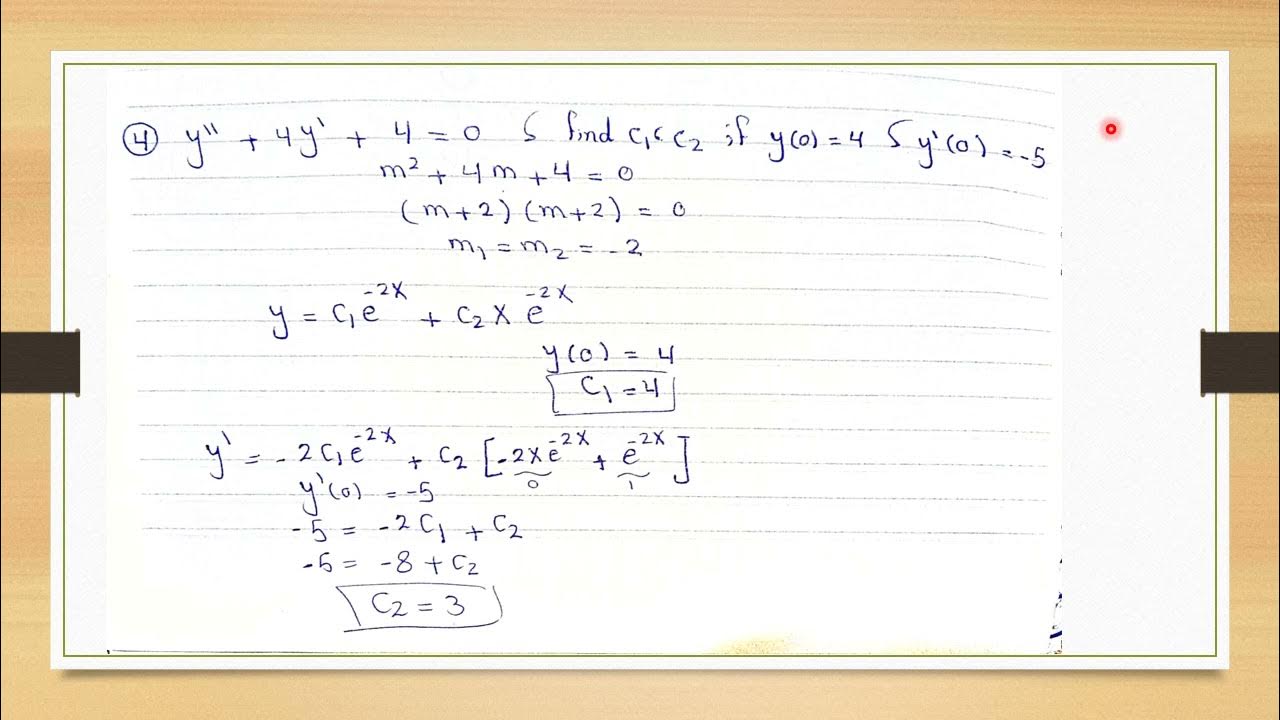 ④ y'' + 4y' + 4 = 0 ς find c₁ ς c₂ if y(0) = 4 ς y'(0) = -5
m² + 4m + 4 = 0
(m+2)(m+2) = 0
m₁ = m₂ = -2
y = c₁e^{-2x} + c₂ x e^{-2x}
y(0) = 4
c₁ = 4
y' = -2c₁e^{-2x} + c₂ [-2xe^{-2x} + e^{-2x}]
0 1
y'(0) = -5
-5 = -2c₁ + c₂
-5 = -8 + c₂
c₂ = 3